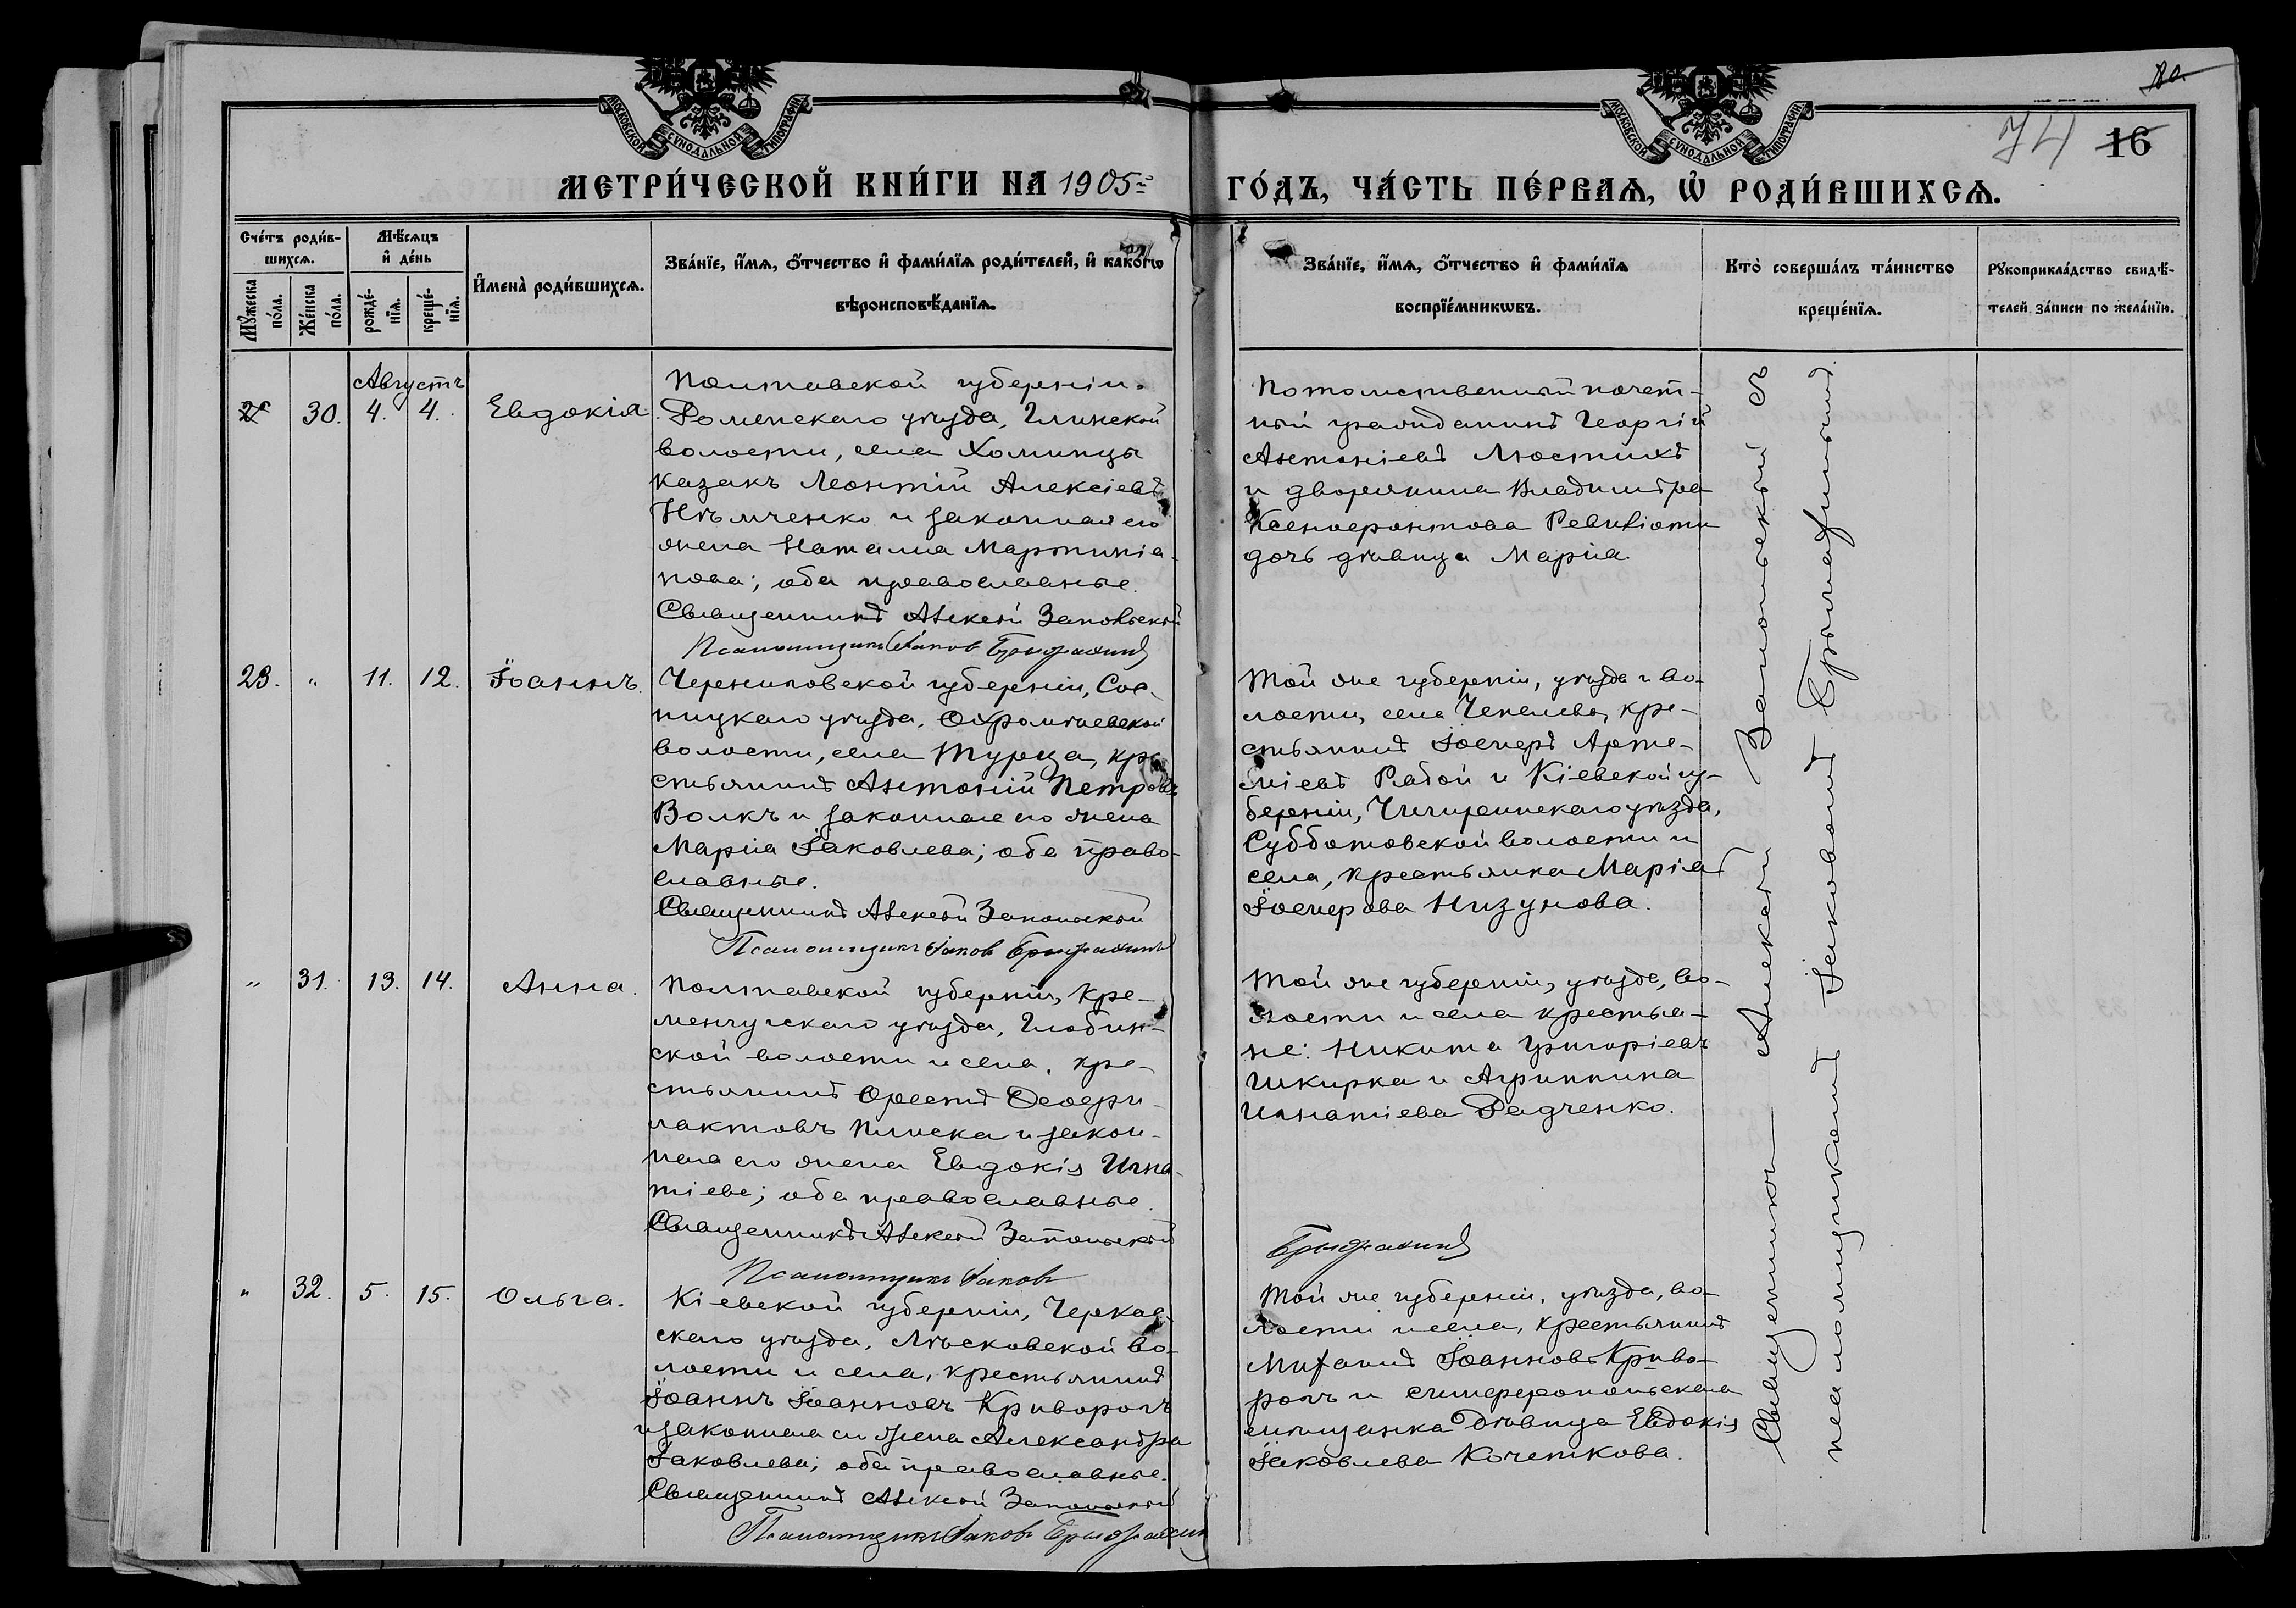 МОСКОВСКОЙ СУНОДАЛЬНОЙ ТИПОГРАФІИ
МОСКОВСКОЙ СУНОДАЛЬНОЙ ТИПОГРАФІИ
74 16
МЕТРИ́ЧЕСКОЙ КНИ́ГИ НА 1905 ГО́ДЪ, ЧА́СТЬ ПЕ́РВАѦ, Ѡ҆ РОДИ́ВШИХСѦ.
Сче́тъ роди́в-
шихсѧ.
Мꙋ́жеска по́ла.
Же́нска по́ла.
Мѣ́сѧцъ
и҆ де́нь
рожде́-
нїѧ.
креще́-
нїѧ.
И҆мена̀ роди́вшихсѧ.
Зва́нїе, и҆́мѧ, ѻ҆́тчество и҆ фами́лїѧ роди́телей, и҆ како́гѡ
вѣроисповѣ́данїѧ.
Зва́нїе, и҆́мѧ, ѻ҆́тчество и҆ фами́лїѧ
воспрїе́мникѡвъ.
Кто̀ соверша́лъ та́инство
креще́нїѧ.
Рꙋкоприкла́дство свидѣ́-
телей за́писи по жела́нїю.
Августъ
30. 4. 4. Евдокія
Полтавской губерніи.
Роменскаго уѣзда, Глинской
волости, села Хоминцы
казакъ Леонтій Алексіевъ
Нѣмченко и законная его
жена Наталия Мартиніа-
нова; оба православные.
Священникъ Алексѣй Запольскій
Псаломщикъ Іаковъ
Потомственный почет-
ный гражданинъ Георгій
Антоніевъ Люстихъ
и дворянина Владиміра
Ксенофонтова
дочь дѣвица Марія
23. " 11. 12. Іоаннъ.
Черниговской губерніи, Сос-
ницкаго уѣзда, Охромѣевской
волости, села Турца, кре-
стьянинъ Антоній Петровъ
Волкъ и законная его жена
Марія Іаковлева; оба право-
славные.
Священникъ Алексѣй Запольскій
Псаломщикъ Іаковъ
Той же губерніи, уѣзда и во-
лости, села Чепелева, кре-
стьянинъ Іосифъ Арте-
міевъ Рабой и Кіевской гу-
берніи, Чигиринскаго уѣзда,
Субботовской волости и
села, крестьянка Марія
Іосифова Низунова.
" 31. 13. 14. Анна.
Полтавской губерніи, Кре-
менчугскаго уѣзда, Глобин-
ской волости и села, кре-
стьянинъ Орестъ Феофи-
лактовъ Плиска и закон-
ная его жена Евдокія Игна-
тіева; оба православные.
Священникъ Алексѣй Запольскій
Псаломщикъ Іаковъ
Той же губерніи, уѣзда, во-
лости и села крестья-
не: Никита Григоріевъ
Шкирка и Агриппина
Игнатіева Радченко.
" 32. 5. 15. Ольга.
Кіевской губерніи, Черкас-
скаго уѣзда, Мѣсковской во-
лости и села, крестьянинъ
Іоаннъ Іоанновъ Криворогъ
и законная его жена Александра
Іаковлева; оба православные.
Священникъ Алексѣй Запольскій
Псаломщикъ Іаковъ
Той же губерніи, уѣзда, во-
лости и села, крестьянинъ
Іоанновъ Криво-
рогъ и симферопольская
мѣщанка дѣвица Евдокія
Іаковлева Кочеткова.
Священникъ Алексѣй Запольскій съ
псаломщикомъ Іаковомъ